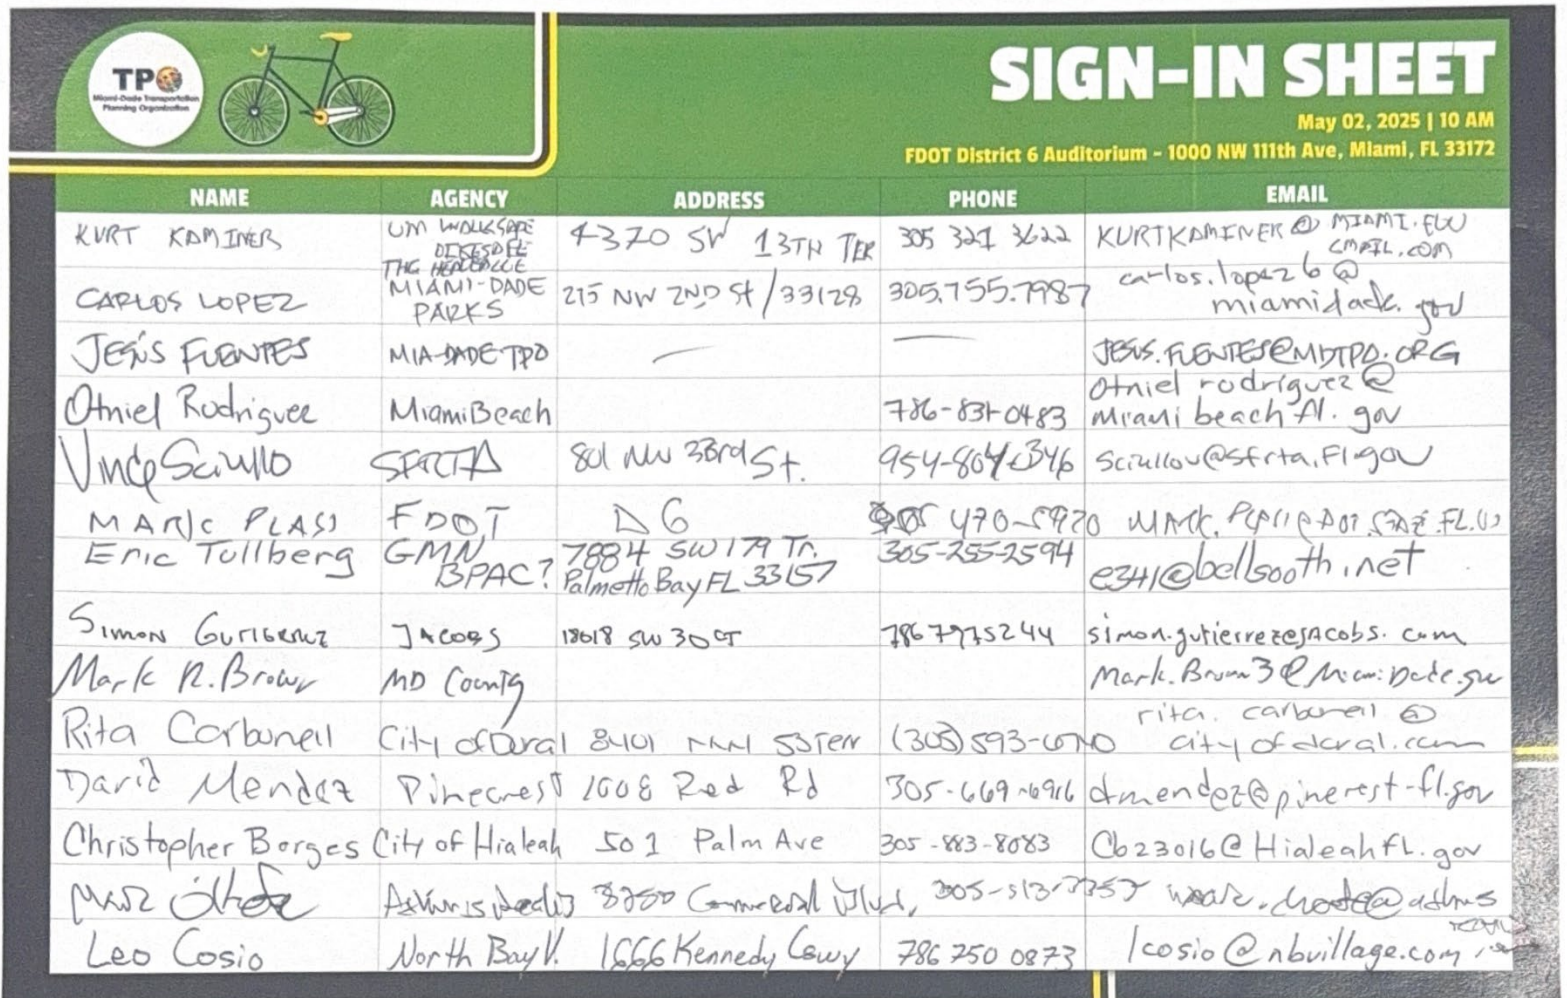 TPO
Miami-Dade Transportation
Planning Organization
SIGN-IN SHEET
May 02, 2025 | 10 AM
FDOT District 6 Auditorium - 1000 NW 111th Ave, Miami, FL 33172
NAME AGENCY ADDRESS PHONE EMAIL
KURT KAMINER UM WALKSAFE BIKESAFE THE 4370 SW 13TH TER 305 321 3622 KURTKAMINER @ MIAMI.EDU GMAIL.COM
CARLOS LOPEZ MIAMI-DADE PARKS 275 NW 2ND St / 33128 305.755.7987 carlos.lopez6@ miamidade.gov
JESÚS FUENTES MIA-DADE TPO — — JESUS.FUENTES@MDTPO.ORG
Otniel Rodriguez Miami Beach 786-831-0483 Otniel rodriguez@ miami beach fl. gov
Vince Sciullo SFRTA 801 NW 33rd St. sciullov@sfrta.fl.gov
MARK PLASS FDOT D6 470-5920
Eric Tullberg GMN BPAC? 7884 SW 179 Tr. Palmetto Bay FL 33157 305-255-2594 e341@bellsooth.net
Simon Gutierrez Jacobs 18618 SW 30 CT 786 7975244 simon.gutierrez@jacobs.com
Mark R. Brown MD County Mark.Brown3@MiamiDade.gov
Rita Carbonell City of Doral 8401 NW 53 Terr (305) 593-6740 rita. carbonell @ city of doral.com
David Mendez Pinecrest Red Rd 305-669-6916 dmendez@pinerest-fl.gov
Christopher Borges City of Hialeah 501 Palm Ave 305-883-8083 Cb23016@Hialeahfl.gov
Commercial Blvd,
Leo Cosio North Bay V. 1666 Kennedy Cswy 786 250 0873 lcosio@nbvillage.com